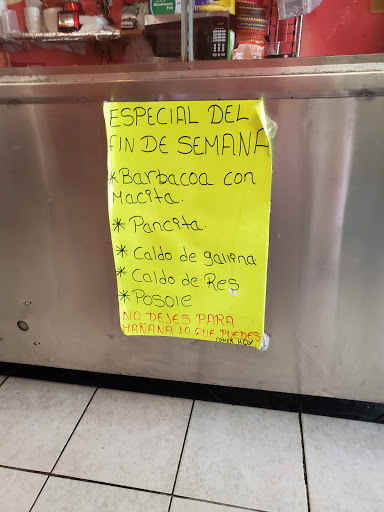 ESPECIAL DEL
FIN DE SEMANA
*Barbacoa con
Macita.
* Pancita.
* Caldo de gallina
* Caldo de Res
* Posole
NO DEJES PARA
MAÑANA LO QUE PUEDES
COMER HOY